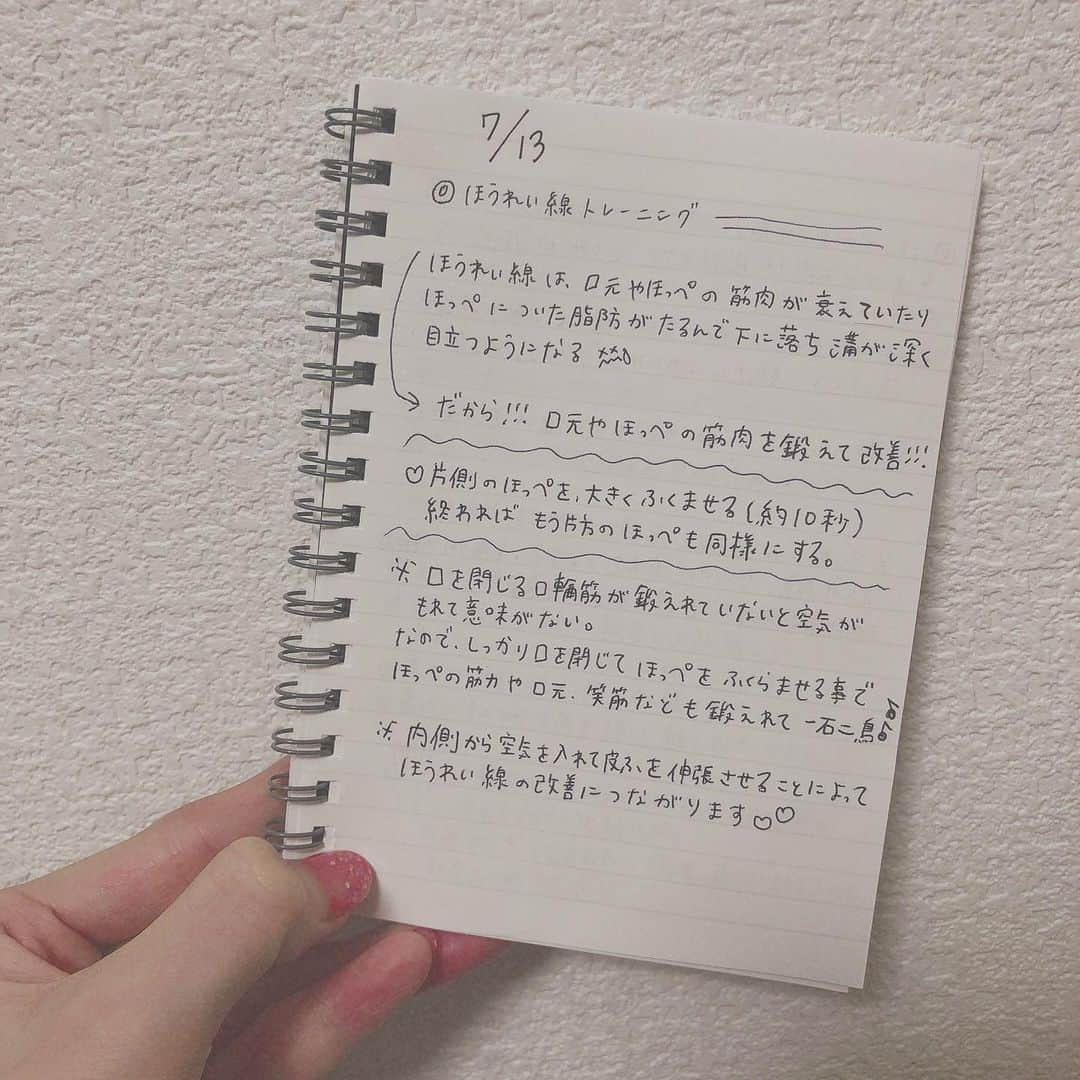 7/13
◎ ほうれい線トレーニング
ほうれい線は、口元やほっぺの筋肉が衰えていたり
ほっぺについた脂肪がたるんで下に落ち溝が深く
目立つようになる
だから!!! 口元やほっぺの筋肉を鍛えて改善!!!
♡片側のほっぺを、大きくふくませる(約10秒)
終われば もう片方のほっぺも同様にする。
※ 口を閉じる口輪筋が鍛えれていないと空気が
もれて意味がない。
なので、しっかり口を閉じてほっぺをふくらませる事で
ほっぺの筋力や口元、笑筋なども鍛えれて一石二鳥
※ 内側から空気を入れて皮ふを伸張させることによって
ほうれい線の改善につながります♡♡